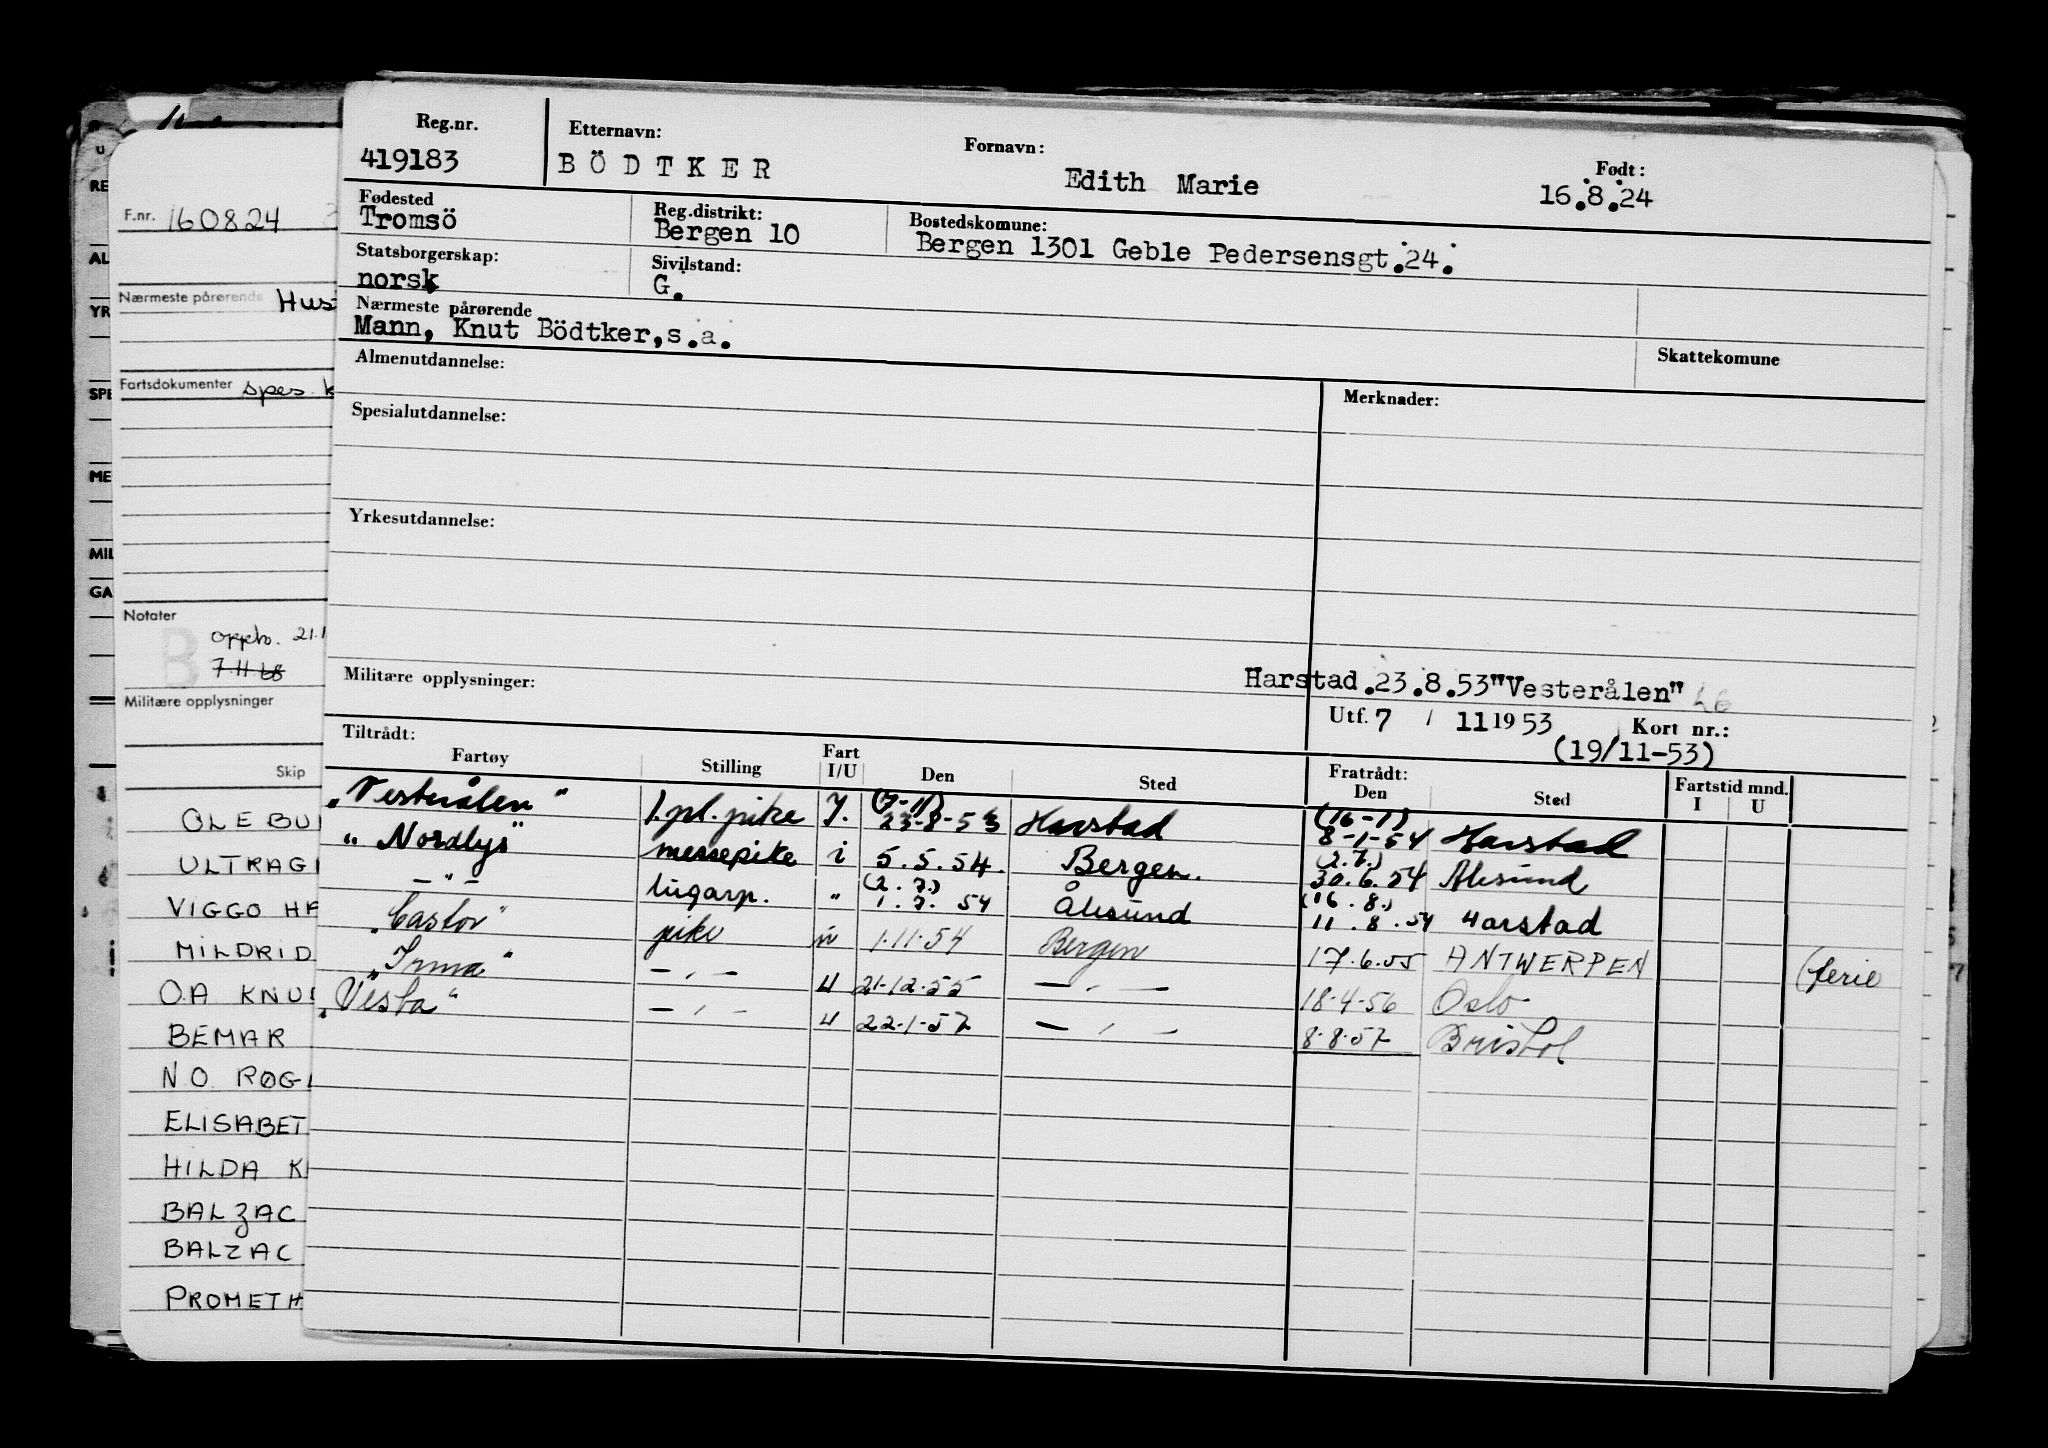 Reg.nr. Etternavn: Fornavn: Født:
419183 BÖDTKER Edith Marie 16.8.24
Fødested Reg.distrikt: Bostedskomune:
Tromsö Bergen 10 Bergen 1301 Geble Pedersensgt.24.
Statsborgerskap: Sivilstand:
norsk G.
Nærmeste pårørende
Mann, Knut Bödtker,s.a.
Almenutdannelse: Skattekomune
Merknader:
Spesialutdannelse:
Yrkesutdannelse:
Militære opplysninger: Harstad.23.8.53"Vesterålen"
Utf. 7 / 11 19 53 Kort nr.:
(19/11-53)
Tiltrådt: Fratrådt: Fartstid mnd.
Fartøy Stilling Fart I/U Den Sted Den Sted I U
(7-11) (16-1)
"Vesterålen" 1.pl.pike I. 23-8-53 Harstad 8-1-54 Harstad
(2.7.)
"Nordlys" messepike i 5.5.54. Bergen. 30.6.54 Ålesund
(2.7.) (16.8.)
—"— lugarp. " 1.7.54 Ålesund 11.8.54 Harstad
"Castor" pike u 1.11.54 Bergen 17.6.55 ANTWERPEN (ferie
"Irma" —"— u 21-12-55 —"— 18-4-56 Oslo
"Vesta" —"— u 22-1-57 —"— 8-8-57 Bristol
F.nr. 160824
Nærmeste pårørende Hus
Fartsdokumenter spes. k
Notater
oppb. 21.1
7.11.68
Militære opplysninger
Skip
OLE BU
ULTRAG
VIGGO HA
MILDRID
OA KNU
BEMAR
NO ROG
ELISABET
HILDA K
BALZAC
BALZAC
PROMETH
RE
AL
YR
SPE
ME
MIL
GA